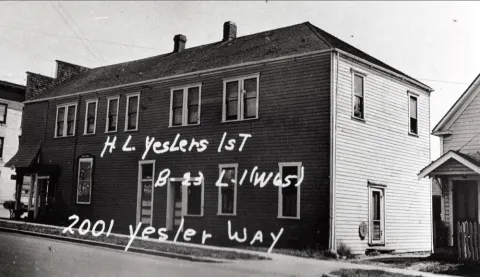 H L Yeslers 1st
B-23 L.1 (W65)
2001 yesler WAY